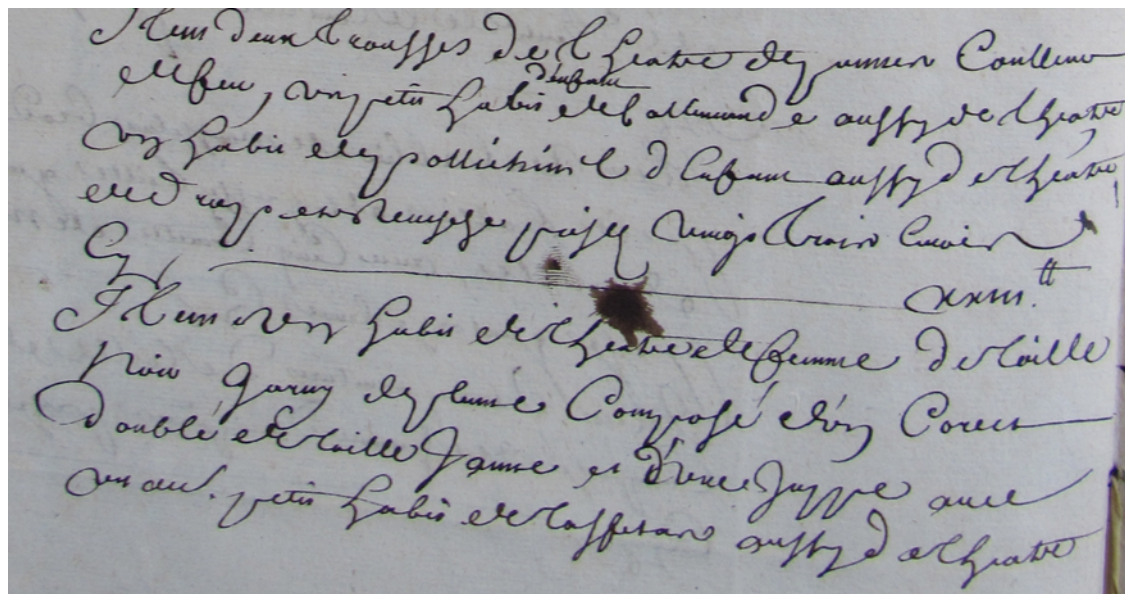 Item deux trousses de theatre de panne Couleur
de feu, un petit habit d'enfant de tallemande aussy de theatre
un habit de pollichinel d'enfant aussy de theatre
et prisé vingt trois livres
Cy xxiii.tt
Item un habit de theatre de femme de toille
noir garny de plume Composé d'un Corcet
doublé de toille Jaune et d'une Juppe avec
un au. petit habit de aussy de theatre